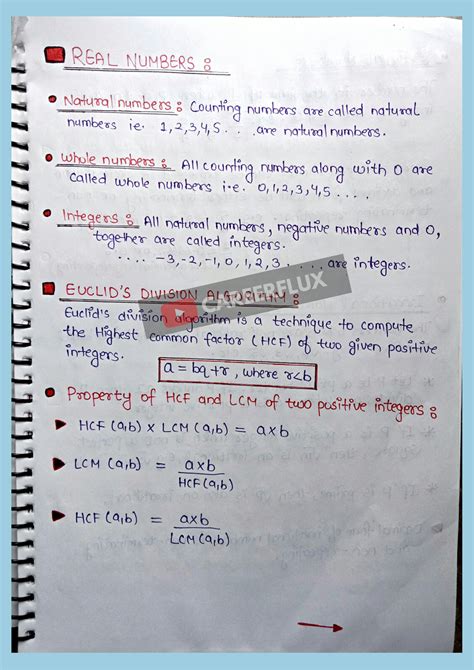 REAL NUMBERS :
Natural numbers : Counting numbers are called natural
numbers ie. 1,2,3,4,5 . . . are natural numbers.
Whole numbers : All counting numbers along with 0 are
called whole numbers i.e. 0,1,2,3,4,5 . . . .
Integers : All natural numbers, negative numbers and 0,
together are called integers.
. . . . -3,-2,-1, 0, 1, 2, 3 . . . . . are integers.
CAREERFLUX
EUCLID'S DIVISION ALGORITHM :
Euclid's division algorithm is a technique to compute
the Highest Common factor (HCF) of two given positive
integers.
a = bq+r , where r<b
Property of HCF and LCM of two positive integers :
HCF (a,b) x LCM (a,b) = axb
LCM (a,b) = axb
HCF(a,b)
HCF (a,b) = axb
LCM (a,b)